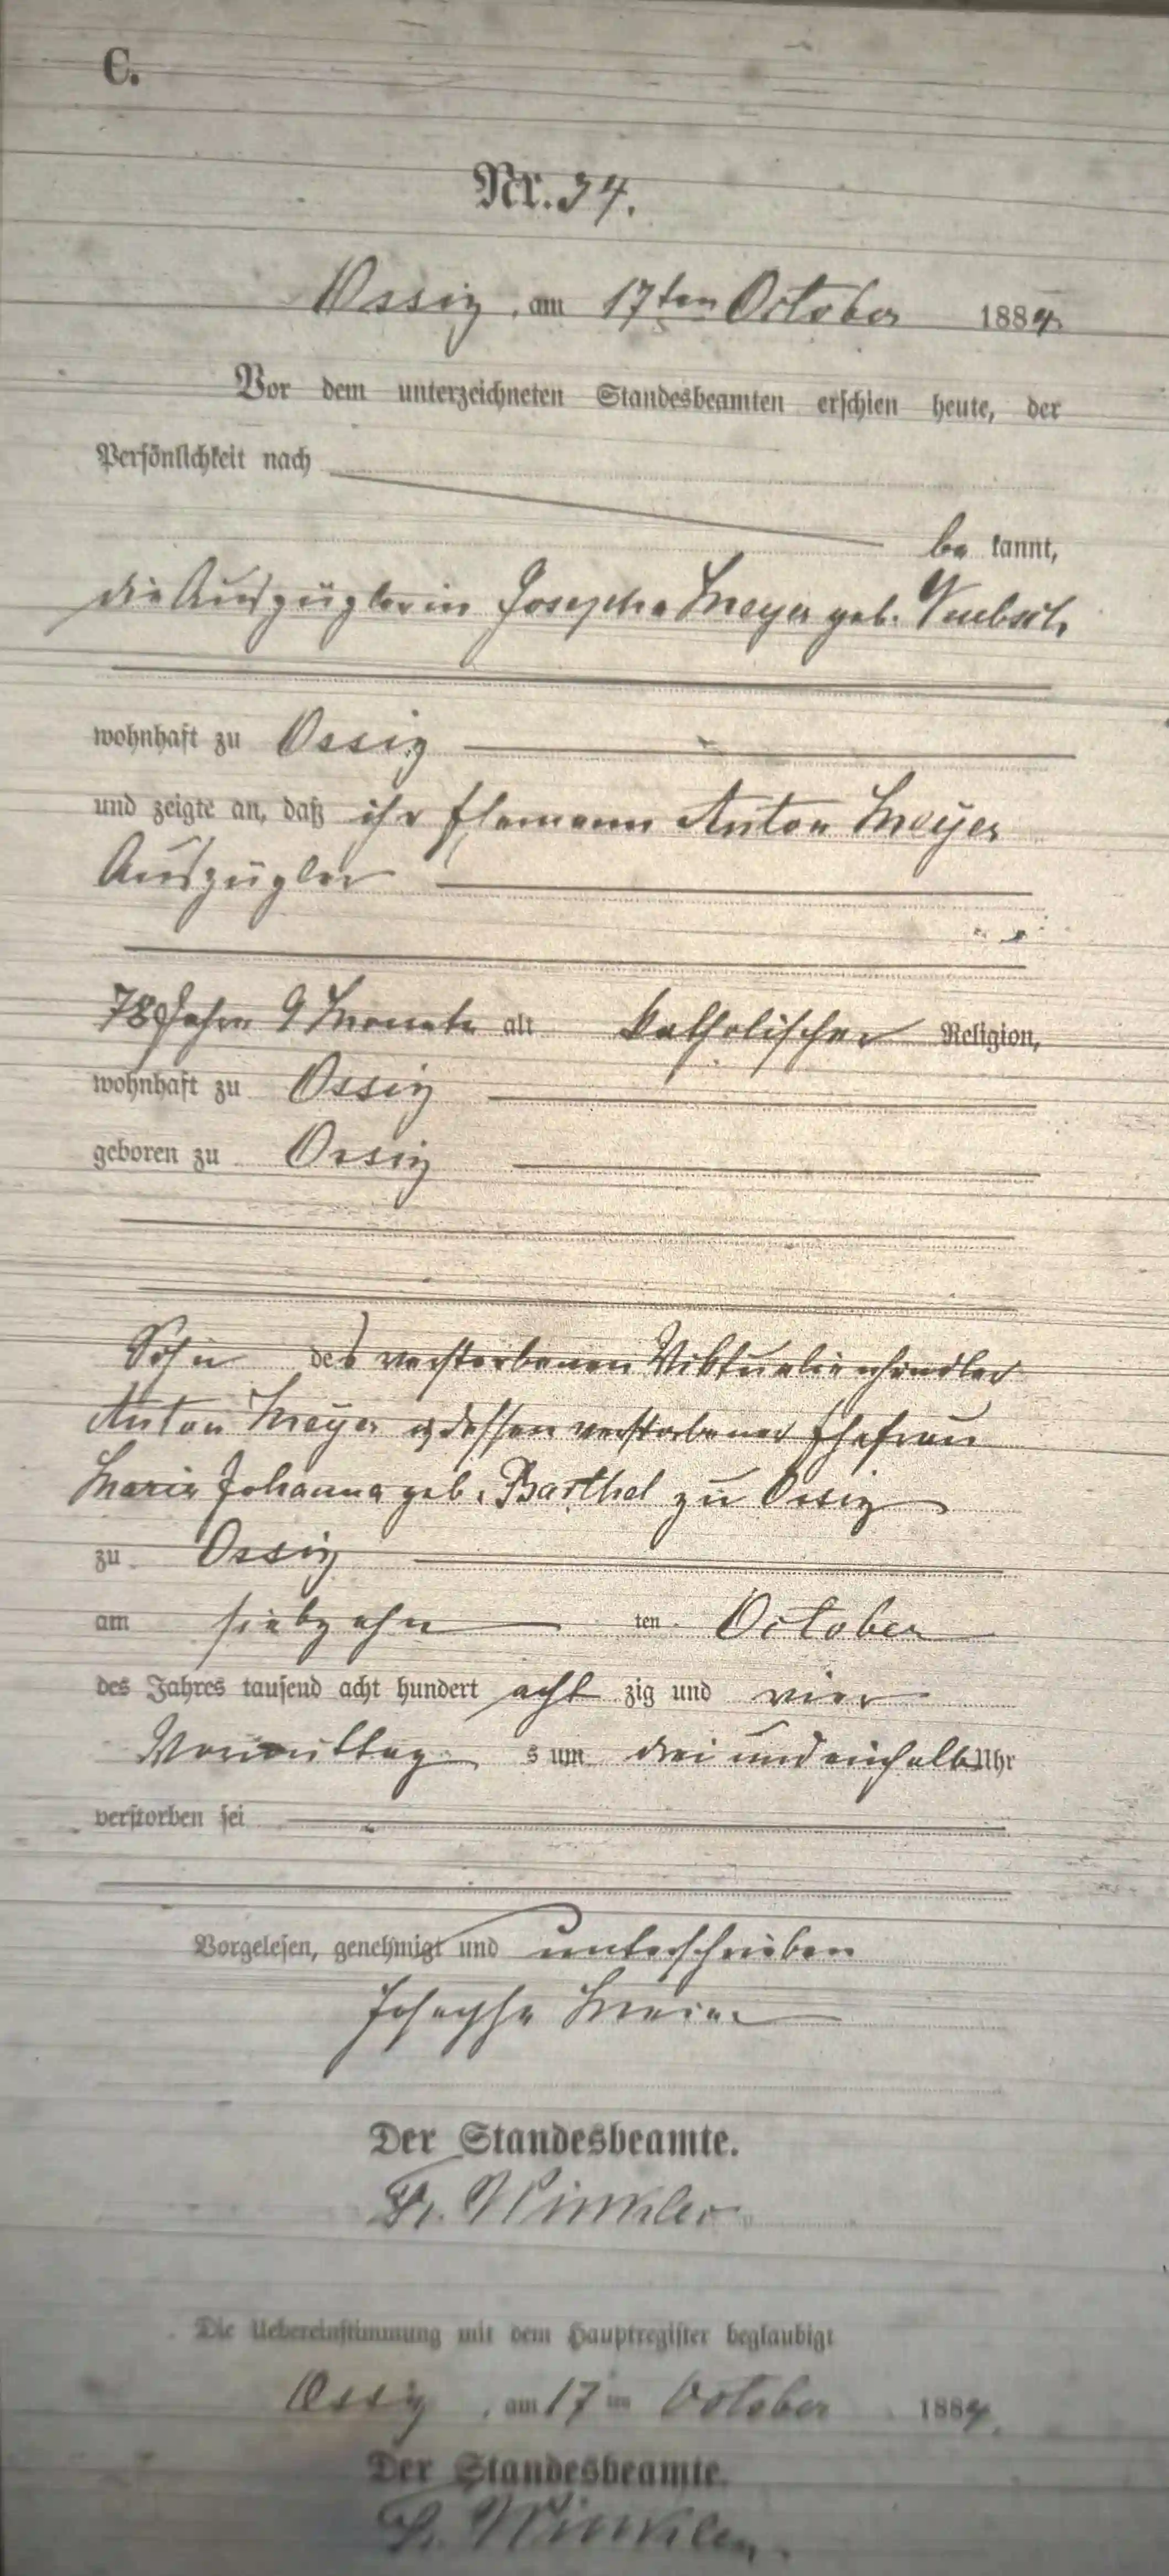 C.
Nr. 34.
Ossig, am 17ten October 1884
Vor dem unterzeichneten Standesbeamten erschien heute, der
Persönlichkeit nach
be kannt,
die Auszüglerin Josepha Meyer geb.
wohnhaft zu Ossig
und zeigte an, daß ihr Ehemann Anton Meyer
Auszügler
78 Jahre 9 Monate alt katholischer Religion,
wohnhaft zu Ossig
geboren zu Ossig
Sohn des verstorbenen Viktualienhändler
Anton Meyer u dessen verstorbener Ehefrau
Maria Johanna geb. Barthel zu Ossig
zu Ossig
am siebzehn ten October
des Jahres tausend acht hundert acht zig und vier
Vormittag s um drei und einhalb Uhr
verstorben sei
Vorgelesen, genehmigt und unterschrieben
Josepha Meier
Der Standesbeamte.
Fr. Winkler
Die Uebereinstimmung mit dem Hauptregister beglaubigt
Ossig, am 17 ten October 1884.
Der Standesbeamte.
Fr. Winkler.